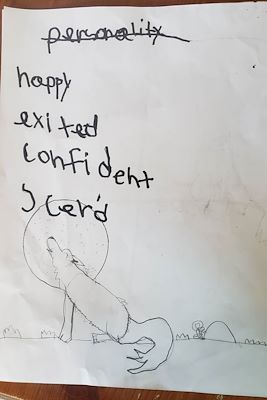 personality
happy
exited
confident
Scer'd